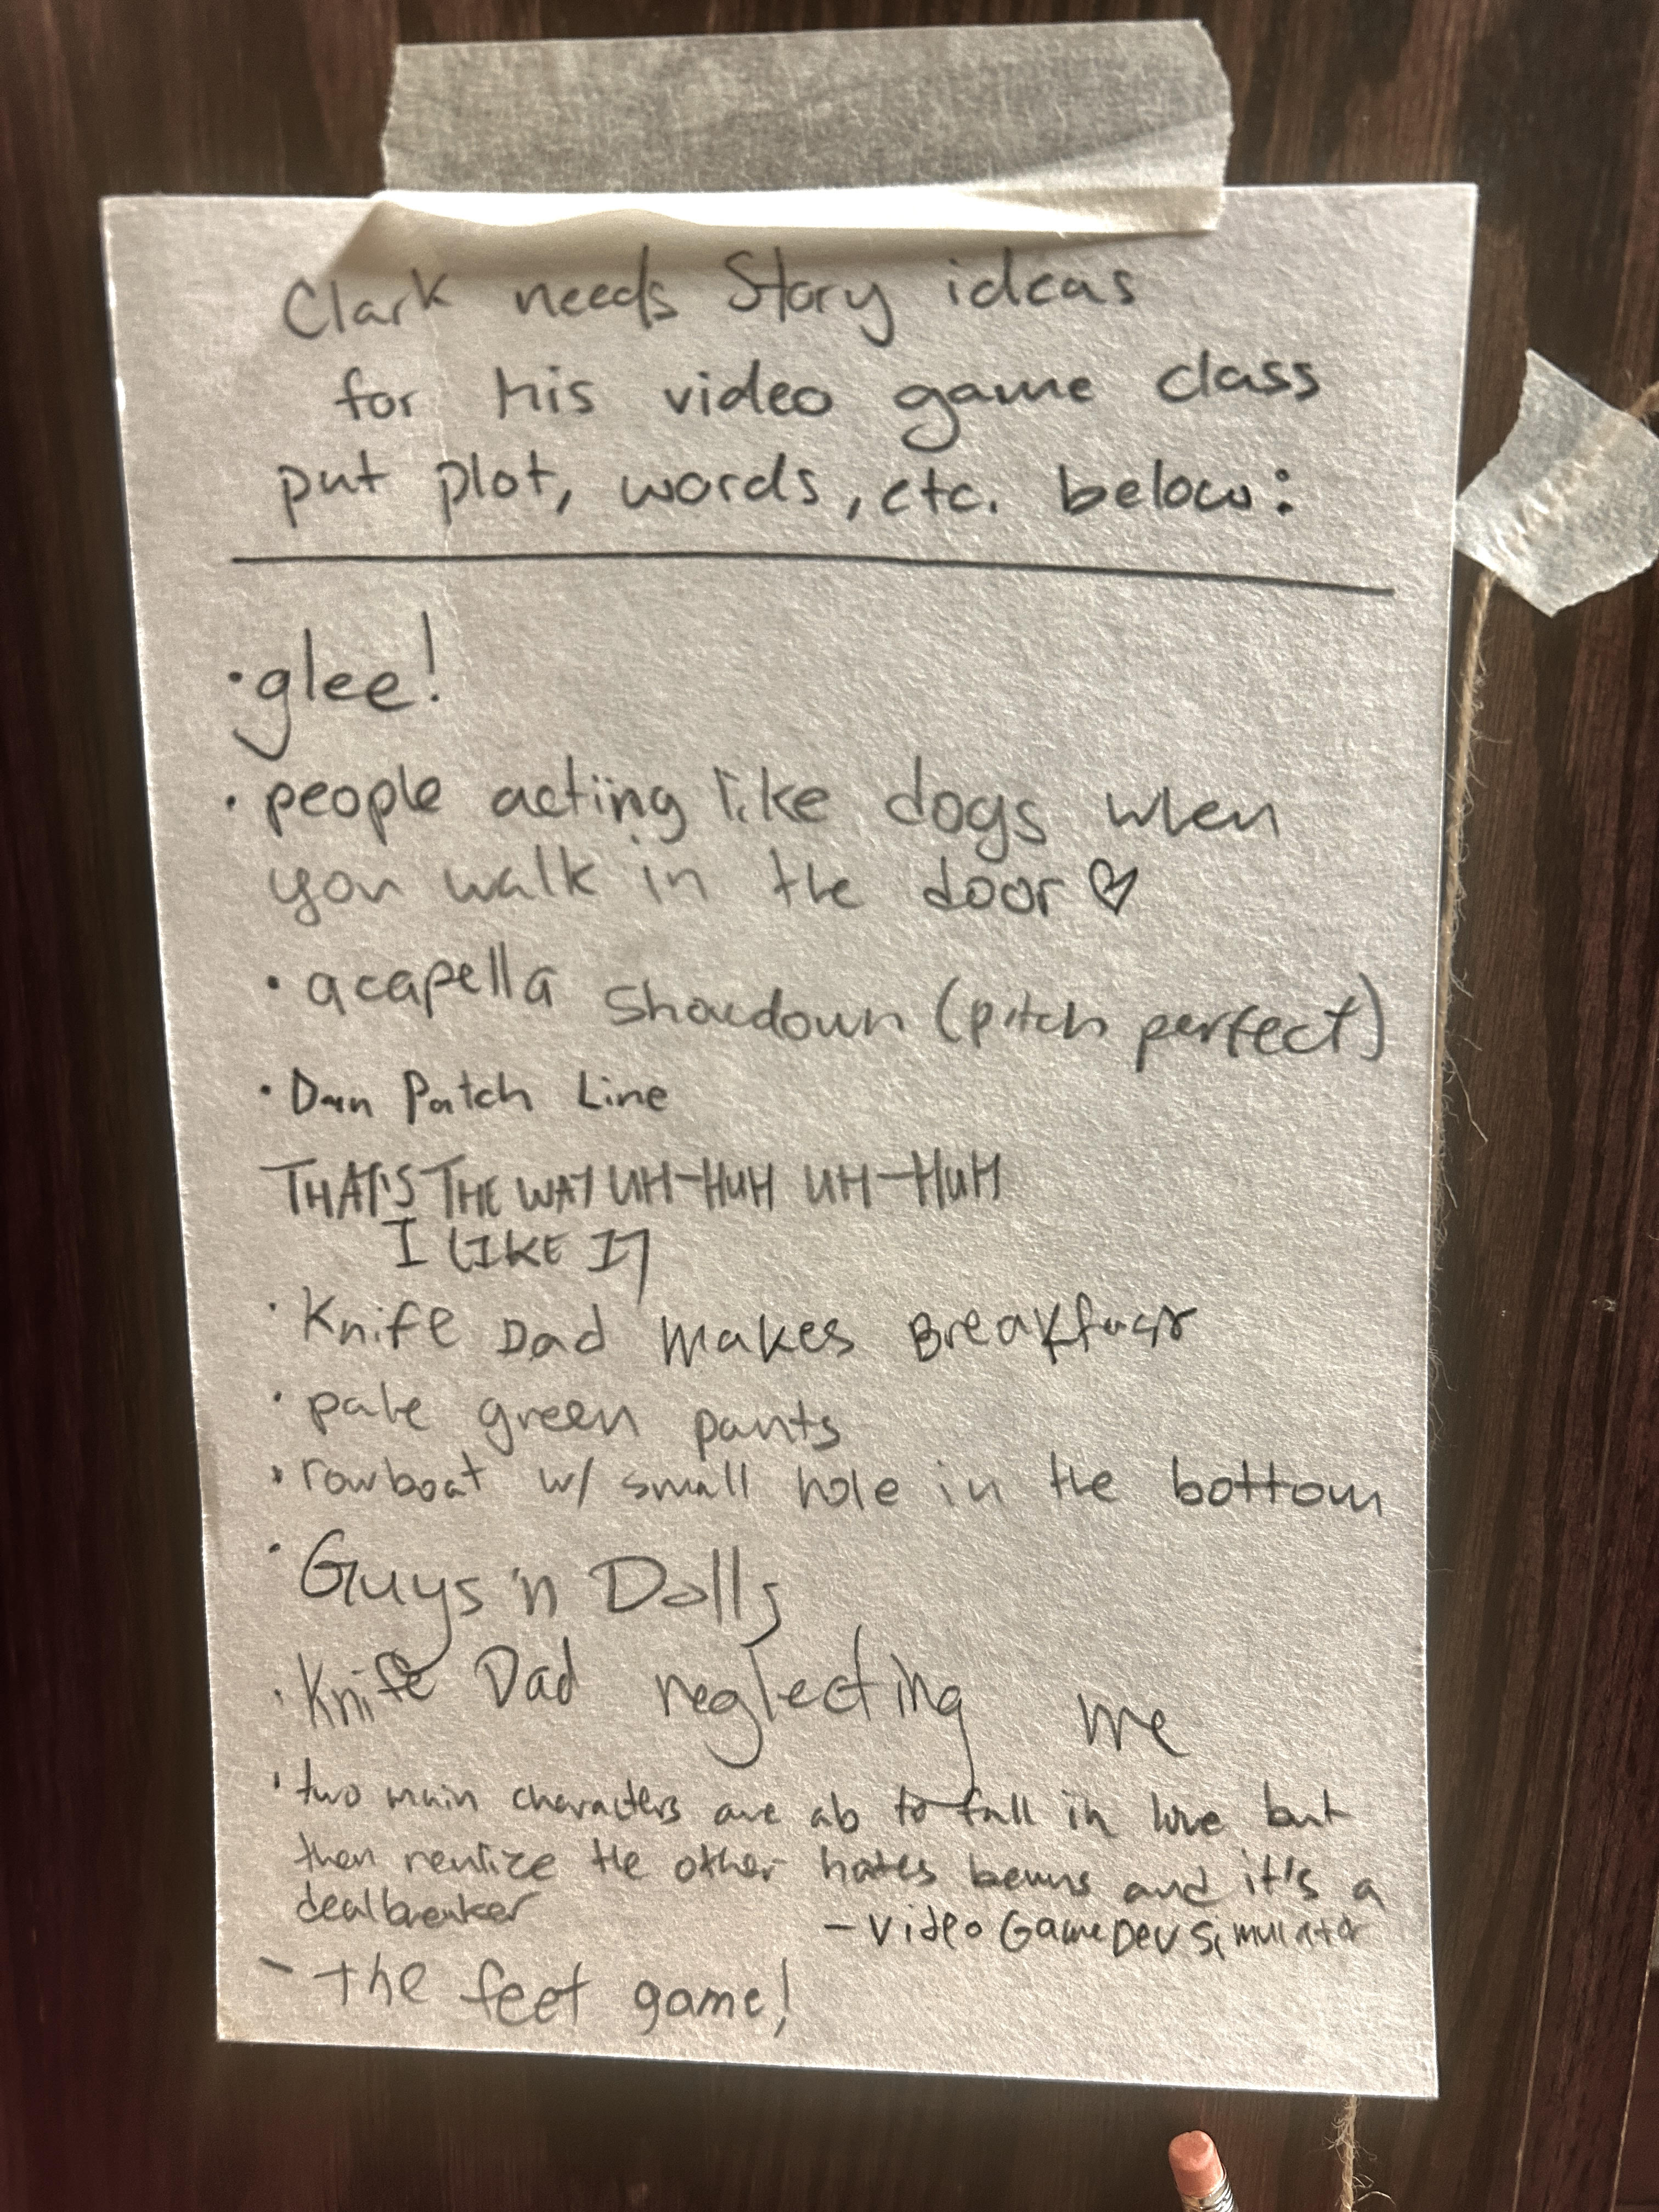 Clark needs Story ideas
for his video game class
put plot, words, etc. below:
· glee!
· people acting like dogs when
you walk in the door ♡
· acapella showdown (pitch perfect)
· Dan Patch Line
THAT'S THE WAY UH-HUH UH-HUH
I LIKE IT
· Knife Dad Makes Breakfast
· pale green pants
· rowboat w/ small hole in the bottom
· Guys 'n Dolls
· Knife Dad neglecting me
· two main characters are ab to fall in love but
then realize the other hates beans and it's a
dealbreaker
- Video Game Dev Simulator
- the feet game!